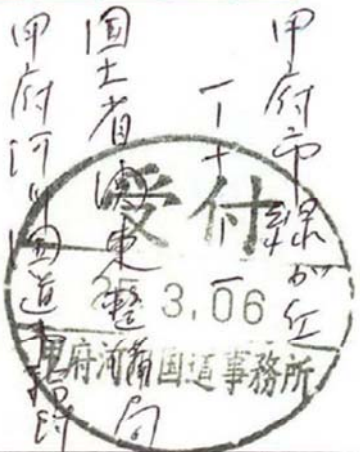 甲府市緑が丘
一丁十一一
国土省関東整備局
甲府河川国道事務所
受付
3.06
甲府河川国道事務所